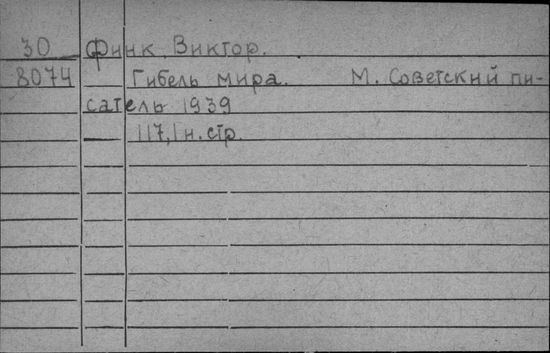 30 Финк Виктор.
8074 Гибель мира. М. Советский пи-
сатель 1939
117,1 н. стр.